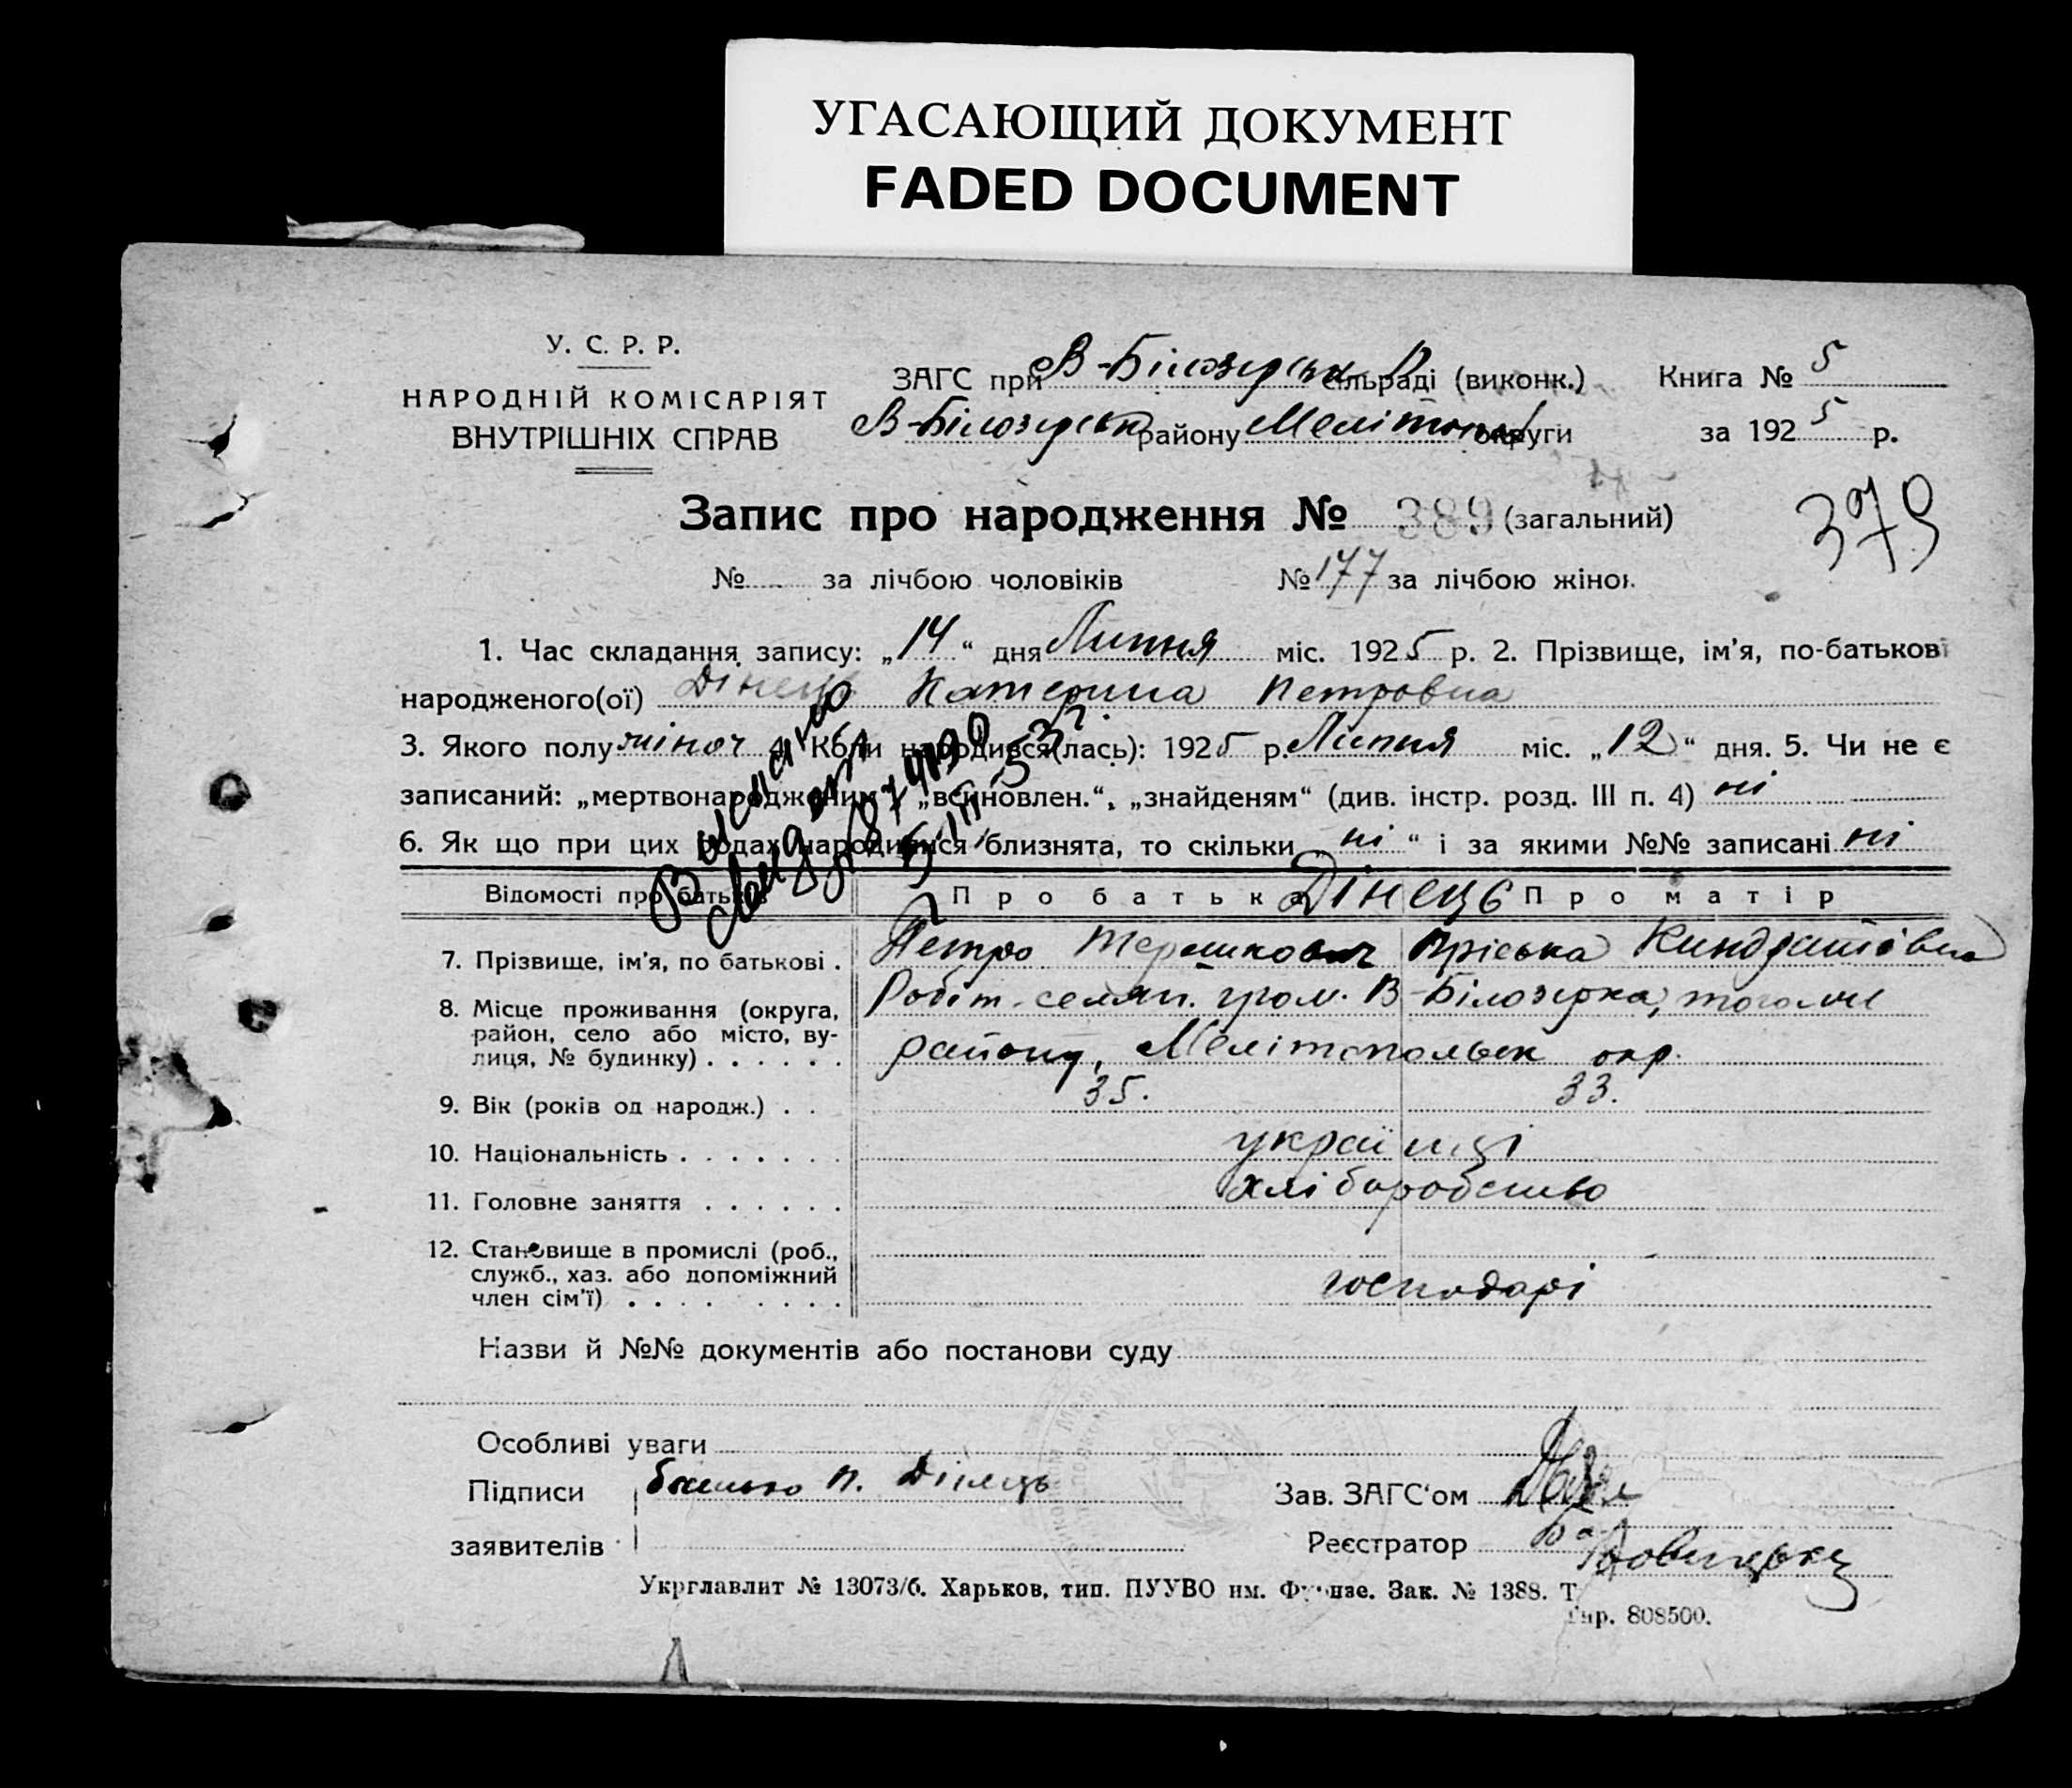 УГАСАЮЩИЙ ДОКУМЕНТ
FADED DOCUMENT
У. С. Р. Р.
НАРОДНІЙ КОМІСАРІЯТ
ВНУТРІШНІХ СПРАВ
ЗАГС при В-Білозерськ сільраді (виконк.)
В-Білозерськ району Мелітоп округи
Книга № 5
за 1925 р.
Запис про народження № 389 (загальний)
379
№ за лічбою чоловіків № 177 за лічбою жінок
1. Час складання запису: „14“ дня Липня міс. 1925 р. 2. Прізвище, ім'я, по-батькові
народженого(ої) Дінець Катерина Петровна
3. Якого полу жіноч 4. Коли народився(лась): 1925 р. Липня міс. „12“ дня. 5. Чи не є
записаний: „мертвонародженим“, „всиновлен.“, „знайденям“ (див. інстр. розд. III п. 4) ні
6. Як що при цих родах народилися близнята, то скільки „ні“ і за якими №№ записані ні
Відомості про батьків Про батька Дінець Про матір
7. Прізвище, ім'я, по батькові . Петро Терешкович Пріська Киндратівна
8. Місце проживання (округа, район, село або місто, вулиця, № будинку) . . . . . . Робіт. селян. гром. В-Білозерка, того ж
району, Мелітопольск окр.
9. Вік (років од народж.) . . 35. 33.
10. Національність . . . . . . . українці
11. Головне заняття . . . . . . хліборобство
12. Становище в промислі (роб., служб., хаз. або допоміжний член сім'ї) . . . . . . . . господарі
Назви й №№ документів або постанови суду
Особливі уваги
Підписи батько П. Дінець Зав. ЗАГС'ом
заявителів Реєстратор
Укрглавлит № 13073/б. Харьков, тип. ПУУВО им. Фрунзе. Зак. № 1388. Т
Тир. 808500.